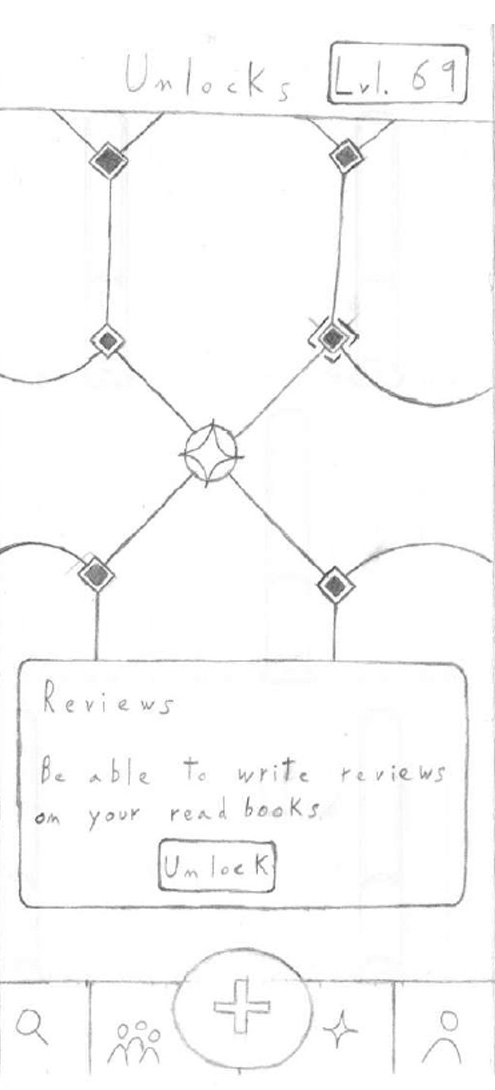 Unlocks
Lvl. 69
Reviews
Be able to write reviews
on your read books.
Unlock